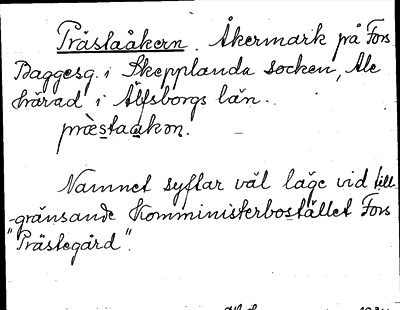 Prästaåkern. Åkermark på Fors
Baggesg. i Skepplanda socken, Ale
härad i Älfsborgs län.
præ̀staakon.
Namnet syftar väl läge vid till-
gränsande Komministerbostället Fors
"Prästegård".